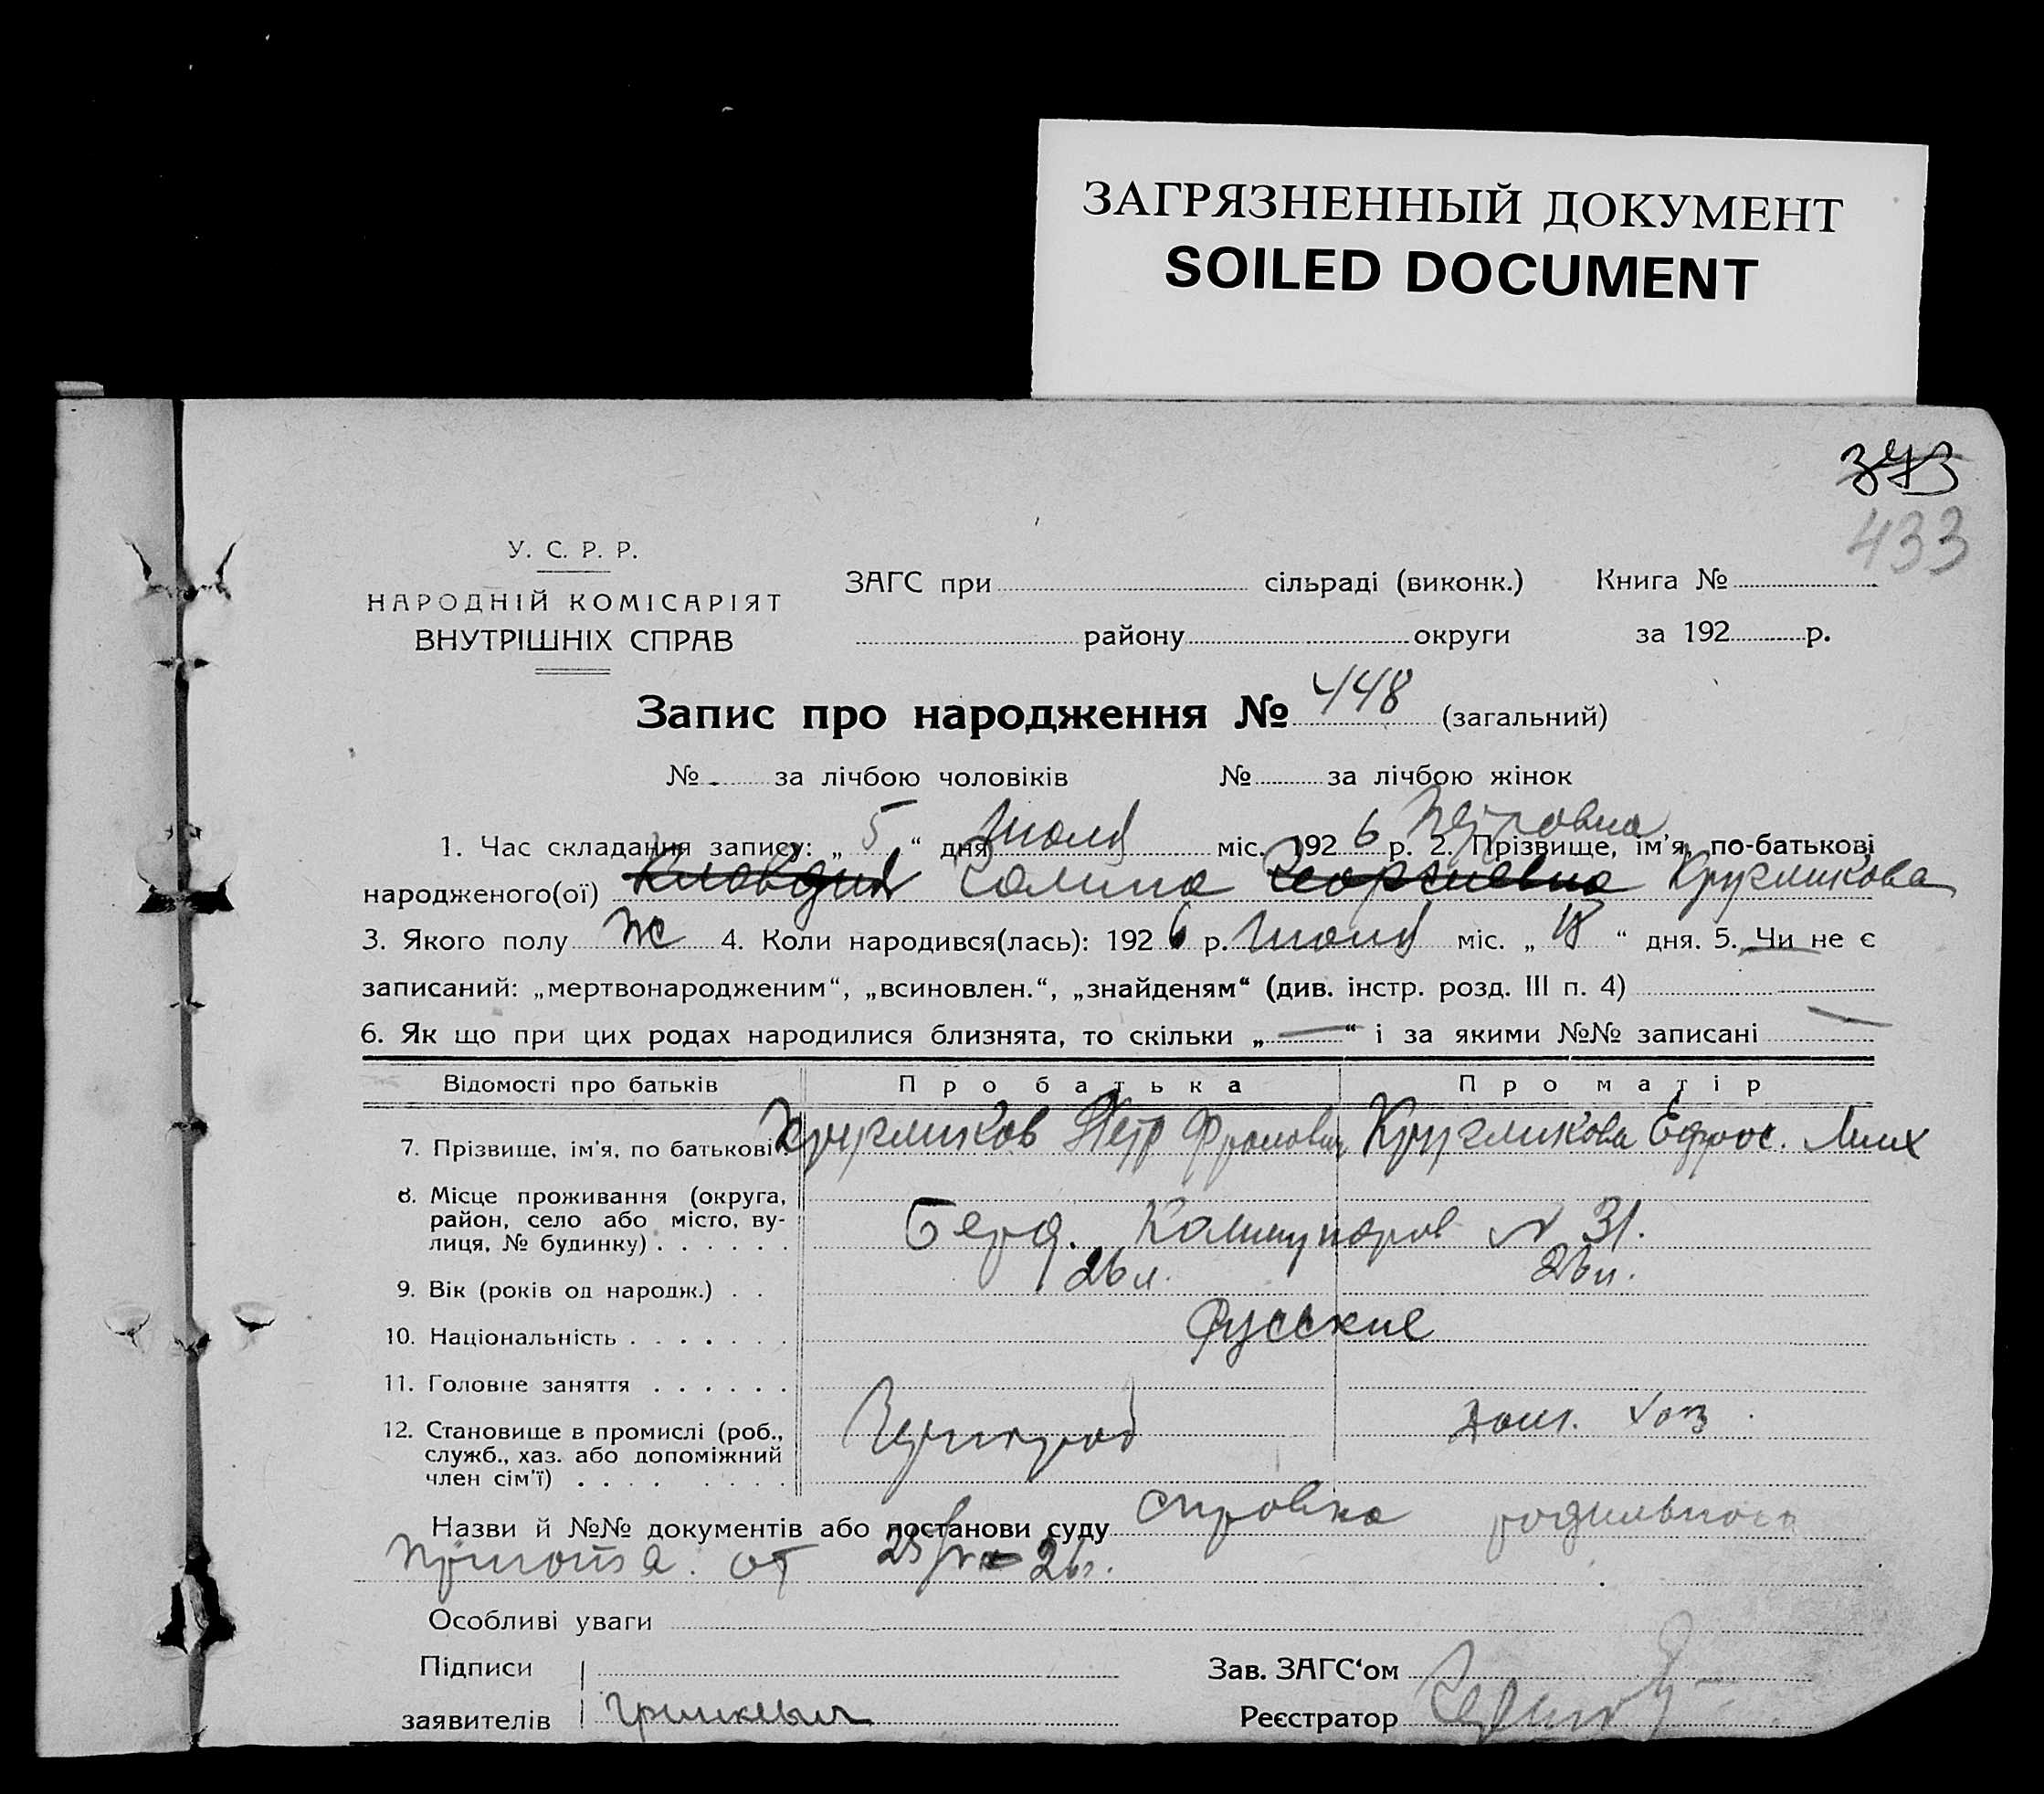 ЗАГРЯЗНЕННЫЙ ДОКУМЕНТ
SOILED DOCUMENT
373
433
У. С. Р. Р.
НАРОДНІЙ КОМІСАРІЯТ
ВНУТРІШНІХ СПРАВ
ЗАГС при сільраді (виконк.) Книга №
району округи за 192 р.
Запис про народження № 448 (загальний)
№ за лічбою чоловіків № за лічбою жінок
Петровна
1. Час складання запису: „ 5 “ дня Июля міс. 192 6 р. 2. Прізвище, ім'я, по-батькові
народженого(ої) Клавдия Галина Георгиевна Кругликова
3. Якого полу ж 4. Коли народився(лась): 192 6 р. Июня міс. „ 18 “ дня. 5. Чи не є
записаний: „мертвонародженим“, „всиновлен.“, „знайденям“ (див. інстр. розд. III п. 4)
6. Як що при цих родах народилися близнята, то скільки „ — “ і за якими №№ записані —
Відомості про батьків Про батька Про матір
7. Прізвище, ім'я, по батькові Кругликов Петр Фролович Кругликова Ефрос. Мих
8. Місце проживання (округа,
район, село або місто, ву-
лиця, № будинку) . . . . . . Берд. Коммунаров № 31.
9. Вік (років од народж.) . . 26 л. 26 л.
10. Національність . . . . . . . Русские
11. Головне заняття . . . . . .
12. Становище в промислі (роб.,
служб., хаз. або допоміжний
член сім'ї) . . . . . . . . дом. хоз.
Назви й №№ документів або постанови суду справка родильного
приюта. от 25/VI - 26г.
Особливі уваги
Підписи Зав. ЗАГС‘ом
заявителів Реєстратор